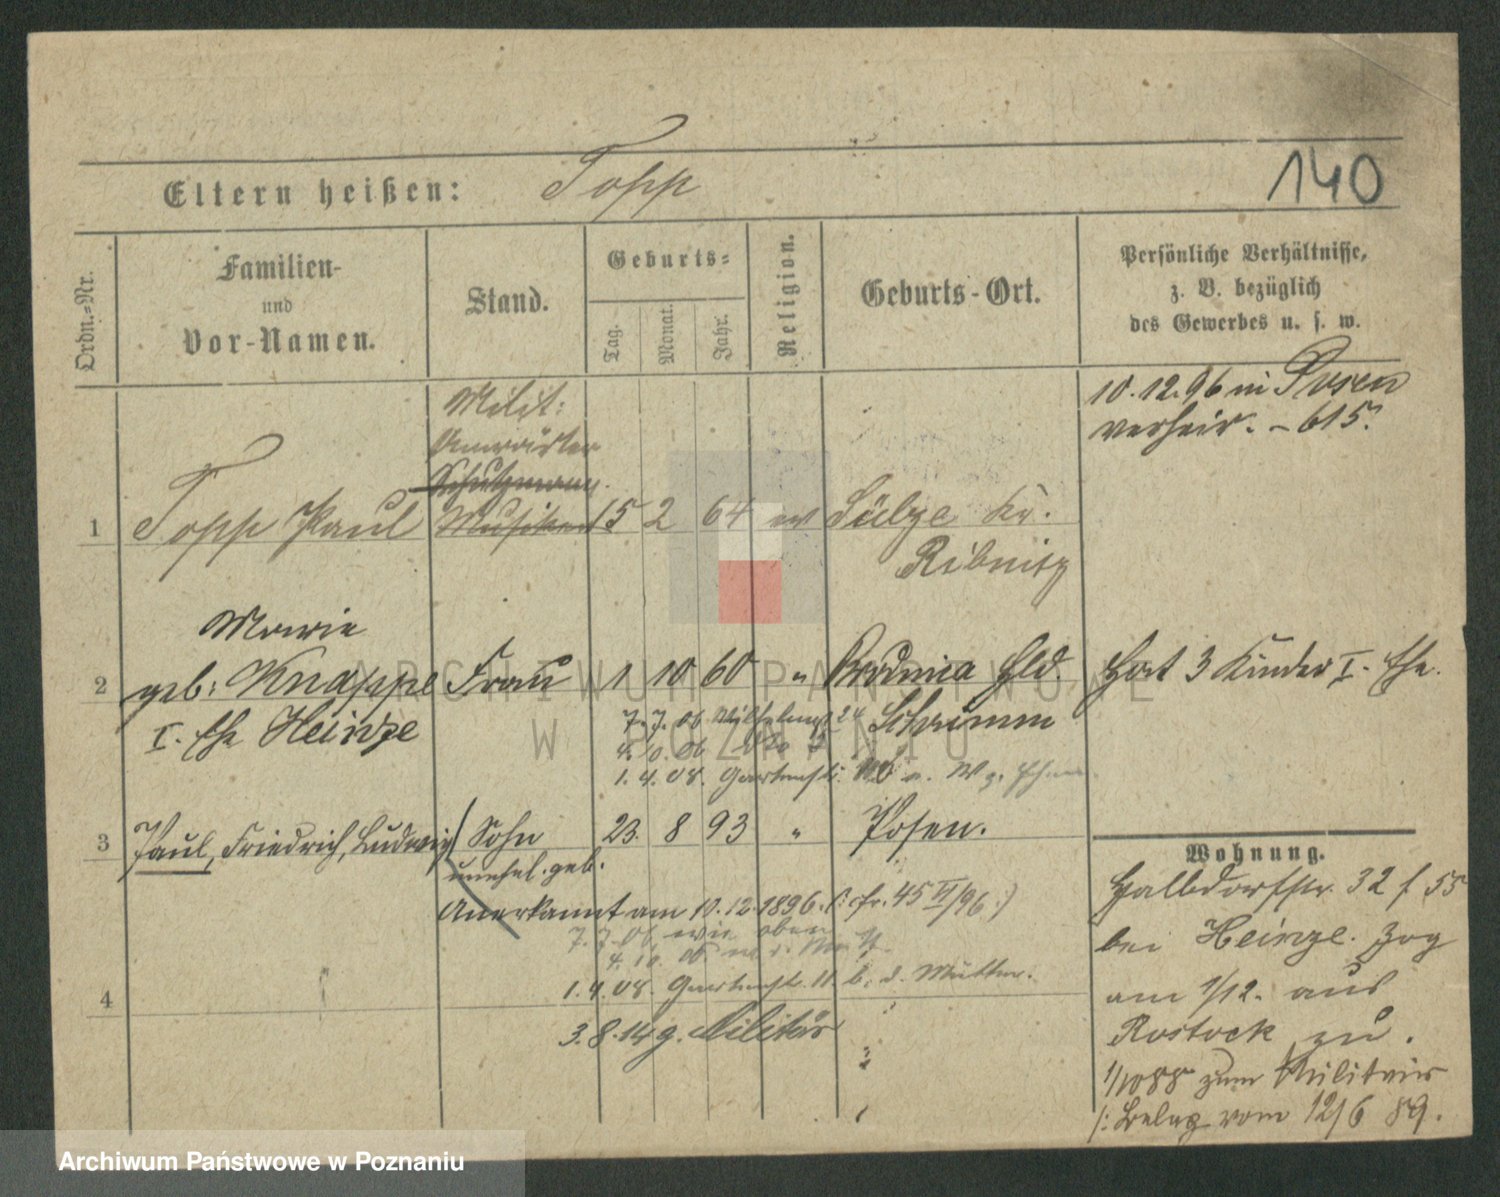 140
Eltern heißen: Topp
Ordn.-Nr.
Familien-
und
Vor-Namen.
Stand.
Geburts-
Tag.
Monat.
Jahr.
Religion.
Geburts-Ort.
Persönliche Verhältnisse,
z. B. bezüglich
des Gewerbes u. s. w.
10.12.96 in Posen
verheir. - 615.
Milit:
Anwärter
Schutzmann
1 Topp Paul Musiker 15 2 64 ev Sülze Kr.
Ribnitz
Marie
2 geb: Knappe Frau 1 10 60 " Brodnica Hld. Hat 3 Kinder I. Ehe.
I. Ehe Heinze
7.7.06 24 Schrimm
4.10.06
1.4.08. Gartenstr.
3 Paul, Friedrich, Ludwig Sohn 23. 8 93 " Posen.
unehel. geb.
Anerkannt am 10.12.1896. (: fr. 45 VI/96 :)
7.7.06 wie oben
4.10.06
4 1.4.08. Gartenstr. 11 b. d. Mutter.
3.8.14 z. Militär
Wohnung.
Halbdorfstr. 32 f 55
bei Heinze. Zog
am 1/12. aus
Rostock zu.
1/10 88 zum Militair
/: Belag vom 12/6 89.
ARCHIWUM PAŃSTWOWE
W POZNANIU
Archiwum Państwowe w Poznaniu